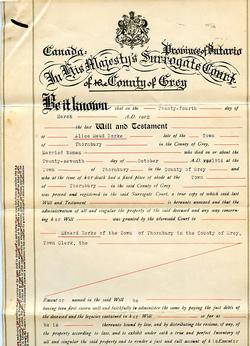 Canada: Province of Ontario
In His Majesty's Surrogate Court
of the County of Grey
Be it known that on the Twenty-fourth day of
March A.D. 19
the last Will and Testament
of Alice Maud Rorke late of the Town
of Thornbury in the County of Grey,
Married Woman who died on or about the
Twenty-seventh day of October A.D. 1914 at the
Town of Thornbury in the County of Grey and
who at the time of her death had a fixed place of abode at the Town
of Thornbury in the said County of Grey
was proved and registered in the said Surrogate Court, a true copy of which said last
Will and Testament is hereunto annexed and that the
administration of all and singular the property of the said deceased and any way concern-
ing her Will was granted by the aforesaid Court to
Edward Rorke of the Town of Thornbury in the County of Grey,
Town Clerk, the
Execut or named in the said Will he
having been first sworn well and faithfully to administer the same by paying the just debts of
the deceased and the legacies contained in her Will so far as
he is thereunto bound by law, and by distributing the residue, if any, of
the property according to law, and to exhibit under oath a true and perfect Inventory of
all and singular the said property and to render a just and full account of his Execut or